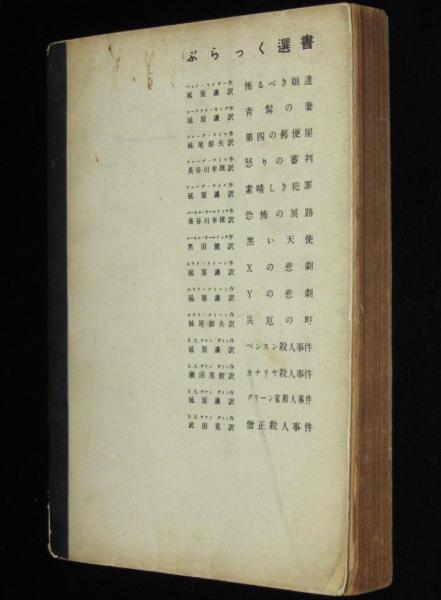 ぶらっく選書
パット・マガー作
延原謙訳 怖るべき娘達
ルーファス・キング作
延原謙訳 青髯の妻
クレーグ・ライス作
妹尾韶夫訳 第四の郵便屋
クレーグ・ライス作
長谷川幸雄訳 怒りの審判
クレーグ・ライス作
延原謙訳 素晴しき犯罪
コーネル・ウールリッチ作
長谷川幸雄訳 恐怖の冥路
コーネル・ウールリッチ作
黒沼健訳 黒い天使
エラリ・クイーン作
延原謙訳 Xの悲劇
エラリ・クイーン作
延原謙訳 Yの悲劇
エラリ・クイーン作
妹尾韶夫訳 災厄の町
S.S.ヴァン ダイン作
延原謙訳 ベンスン殺人事件
S.S.ヴァン ダイン作
瀬沼茂樹訳 カナリヤ殺人事件
S.S.ヴァン ダイン作
延原謙訳 グリーン家殺人事件
S.S.ヴァン ダイン作
武田晃訳 僧正殺人事件